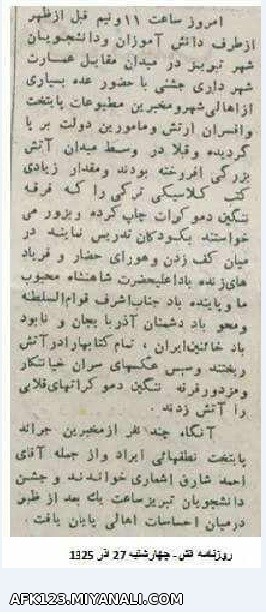 امروز ساعت ۱۱ ونیم قبل ازظهر
ازطرف دانش آموزان ودانشجویان
شهر تبریز در میدان مقابل عمارت
شهر داری جشنی با حضور عده بسیاری
ازاهالی شهرو مخبرین مطبوعات پایتخت
وافسران ارتش ومامورین دولت بر پا
گردیده وقلا در وسط میدان آتش
بزرگی افروخته بودند ومقدار زیادی
کتب کلاسیکی ترکی را که فرقه
ننگین دموکرات چاپ کرده وبزور می
خواستند بکودکان تدریس نمایند در
میان کف زدن وهورای حضار و فریاد
های زنده باداعلیحضرت شاهنشاه محبوب
ما و پاینده باد جناب اشرف قوام السلطنه
ومحو باد دشمنان آذربایجان و نابود
باد خائنین ایران ، تمام کتابهارادر آتش
ریختند وسپس عکسهای سران خیانتکار
ومزدورفرقه ننگین دمو کراتهای قلابی
را آتش زدند .
آنگاه چند نفر ازمخبرین جرائد
پایتخت نطقهائی ایراد واز جمله آقای
احمد شارق اشعاری خواندند و جشن
دانشجویان تبریز ساعت یک بعد از ظهر
درمیان احساسات اهالی پایان یافت .
روزنامه آتش ـ چهارشنبه 27 آذر 1325
AFK123.MIYANALI.COM